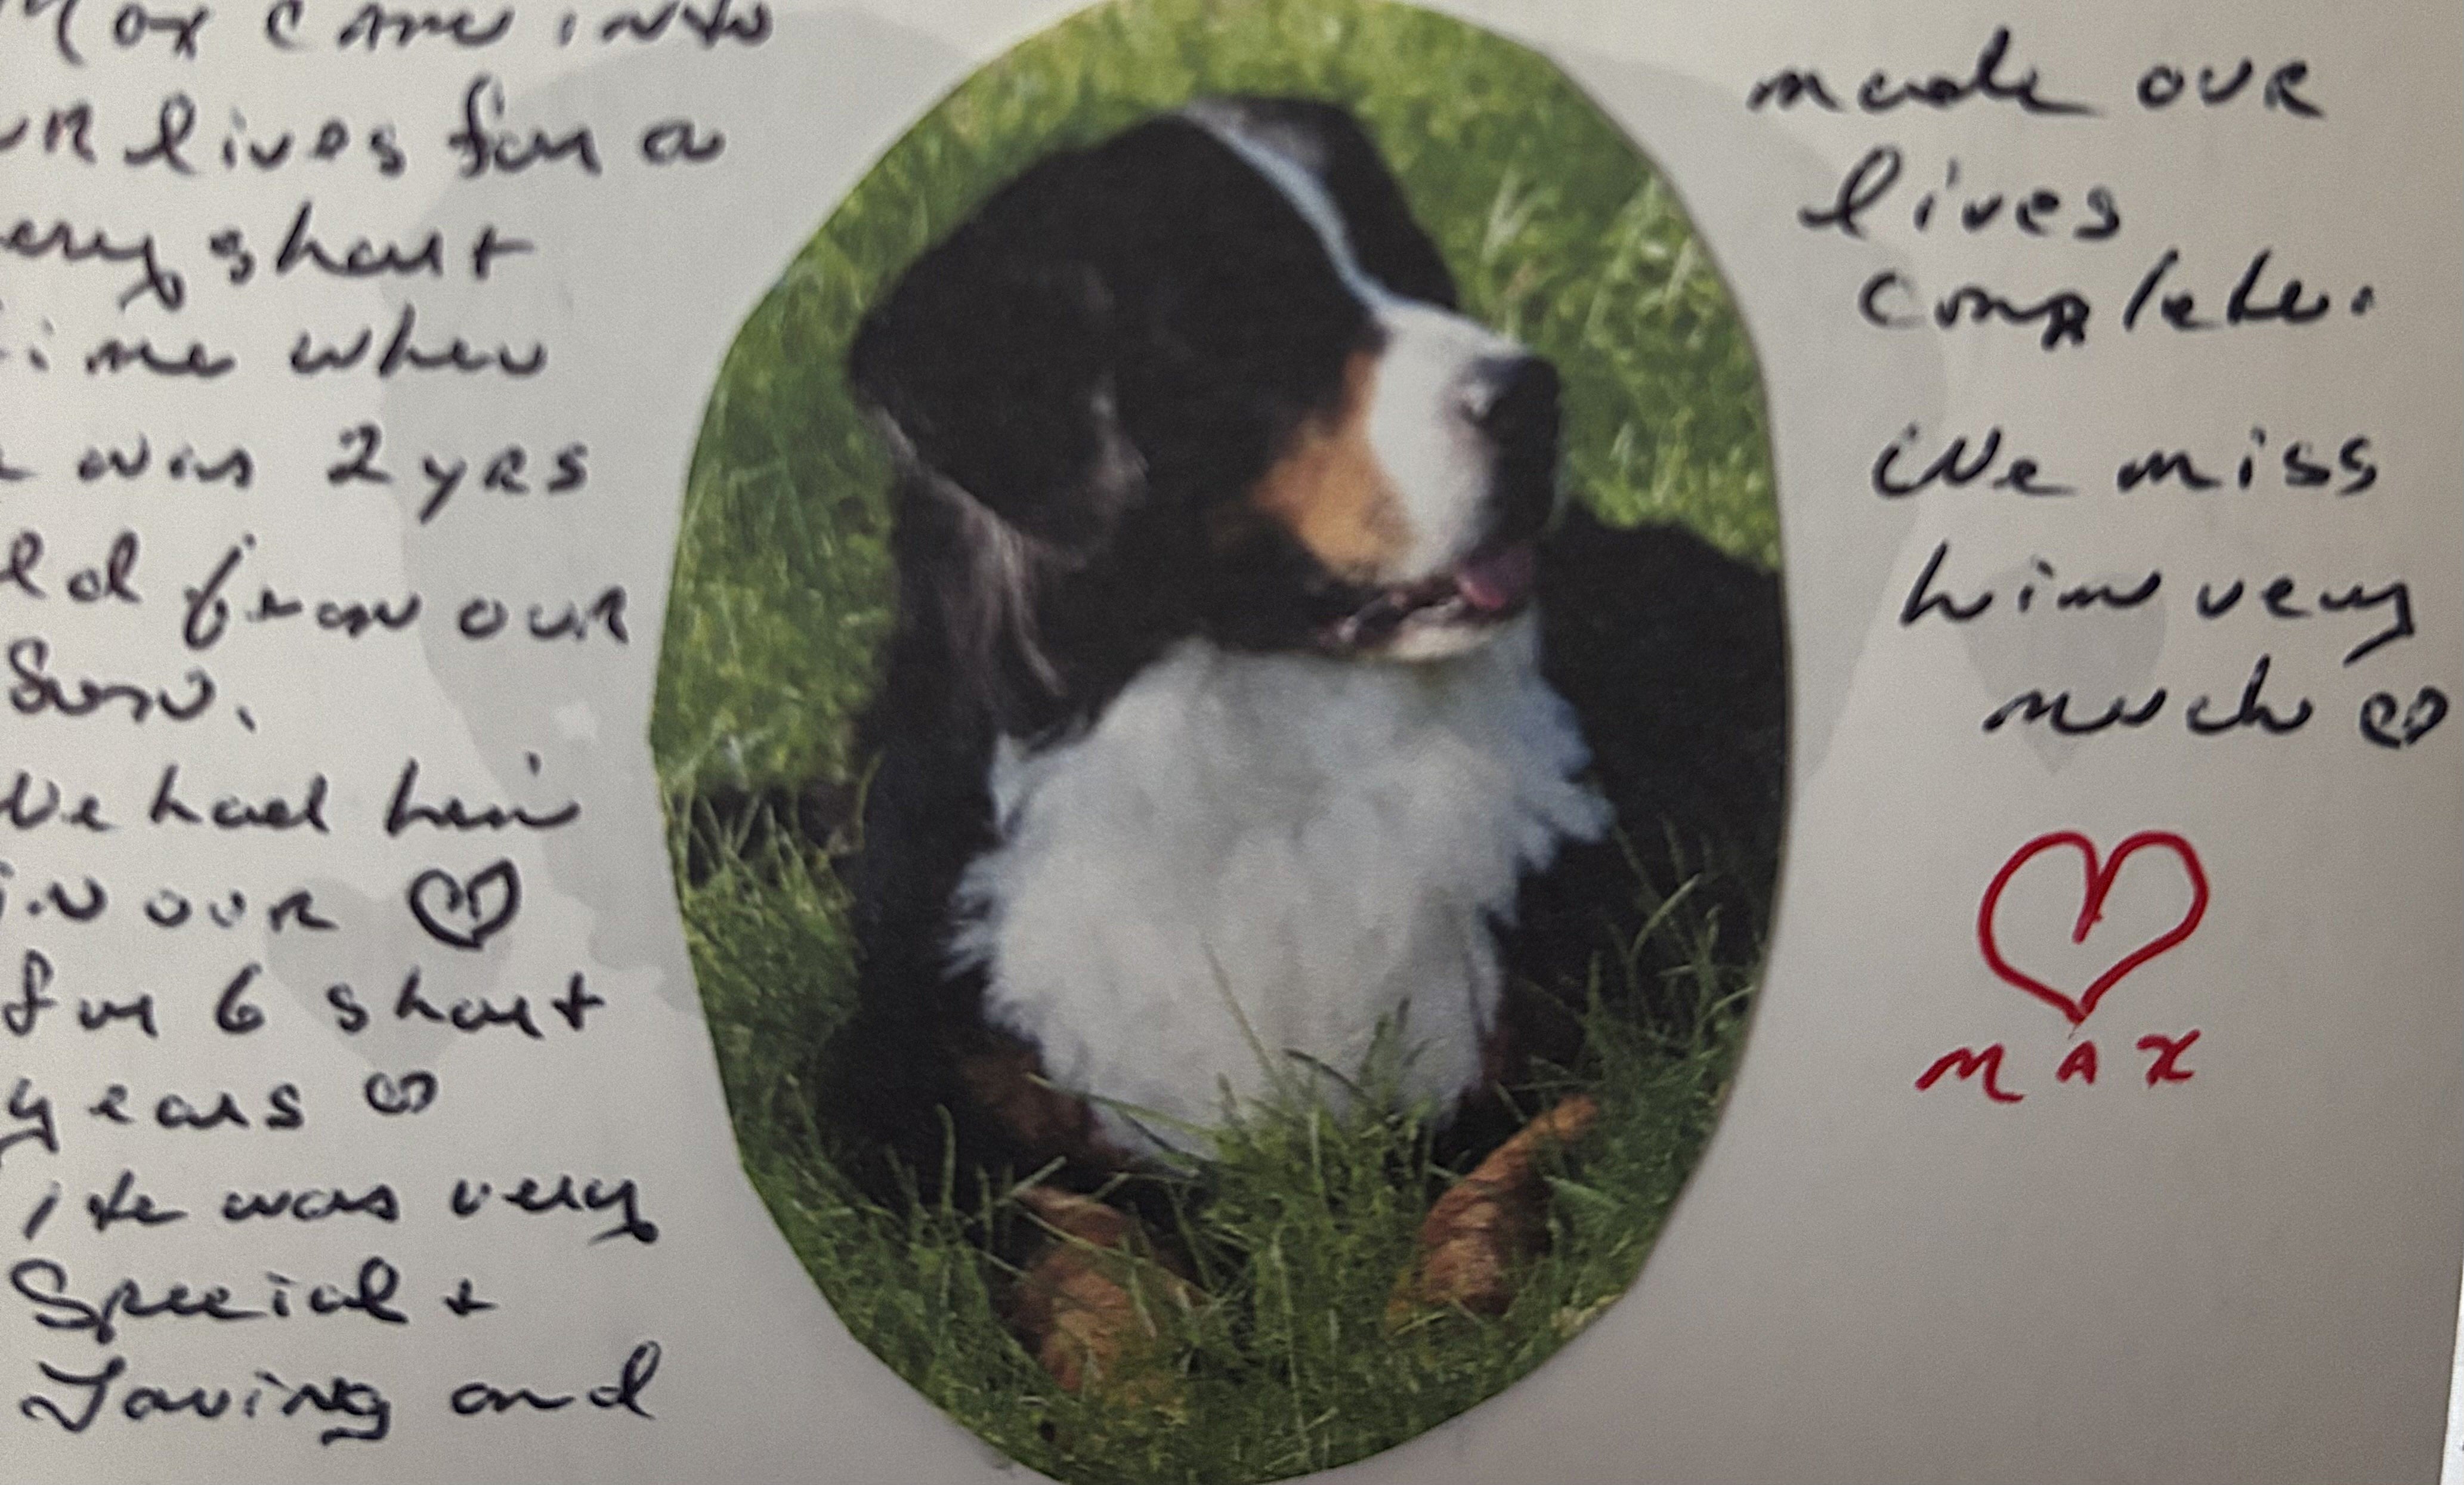 Max came into
our lives for a
very short
time when
he was 2 yrs
old from our
Son.
We had him
in our ♡
for 6 short
years ♡
He was very
Special +
Loving and
made our
lives
complete.
We miss
him very
much ♡
♡
MAX